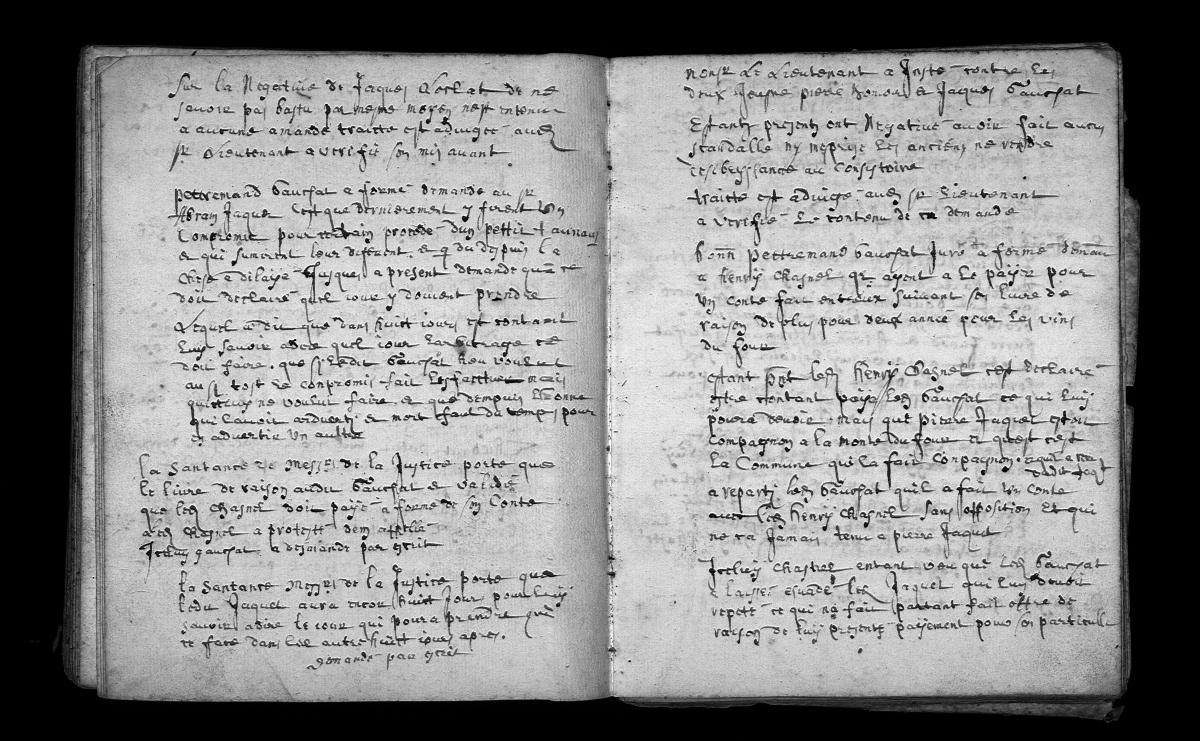 Sur la Negative de Jaques Lesclat de ne
savoir pas bastu par mesme moyen nest entenu
a aucune amande traitte est adiugee aud
sr Lieutenant a verifie son mis avant
Pettremand Gauchat a formé demande au sr
Abram Jaquet cest que dernierement y firent un
Compromis pour certain procede dun pettit
et qui sumirent leur diferent. et q du depuis la
chose a dilayé Jusques a present demande quil ce
doit declaire quel iour y doivent prendre
Lequel a dit que dans huict iours est contant
Luy savoir adire quel iour Larbitrage ce
doit faire. que si Ledit Gauchat heu voulut
au si tost le conpromis fait mais
ne voulut faire, et que dempuis Lhonme
qui lavoit et mort faut du temps pour
en advertir un aultre
La Santance de Messrs de la Justice porte que
le livre de raison audit Gauchat et valide
que led Chasnel doit paye a forme de son Conte
a led Chasnel a protesté den appelle
Iceluy gauchat a desmande par escrit
la Santance Messrs de la Justice porte que
ledit Jaquet aura encor huict Jour pour luy
savoir adire le iour qui poura prendre
ce face dans les autre huict iours apres.
Demandé par escrit
Monsr Le Lieutenant a Insté contre les
deux Jeusne pierre et Jaques Gauchat
Estants presents ont Negative avoir fait aucun
scandalle ny meprise les anciens ne rendre
desobeyssance au Consistoire
traitte est adiugé aud sr Lieutenant
a verifie Le contenu de ca demande
Pettremand Gauchat Juré a forme deman
a Henry Chasnel qr ayent a Le payer pour
un conte fait entreux suivant son livre de
raison de plus pour deux annee pour les vins
du four
Estant pnt led Henry Chasnel cest declairé
estre contant paye led Gauchat ce qui luy
poura devoir mais que Pierre Jaquet estoit
Compagnon a la monte du four et quest cest
La Commune qui la fait Conpagnon.
a reparti led Gauchat quil a fait un conte
avec led Henry Chasnel sans opposition et qui
ne ca Jamais tenu a pierre Jaquet
Iceluy Chasnel entant veu que led Gauchat
a laisse led Jaquet qui luy devoit
repeté ce qui na fait partant fait offre de
raison de luy presente payement pour son particulie